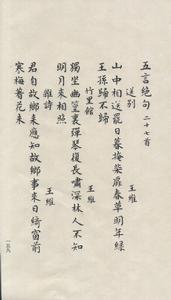 五言絶句 二十七首
送别 王維
山中相送罷日暮掩柴扉春草明年緑
王孫歸不歸
竹里館 王維
獨坐幽篁裏彈琴復長嘯深林人不知
明月來相照
雜詩 王維
君自故鄉來應知故鄉事來日綺窗前
寒梅著花未
一五九